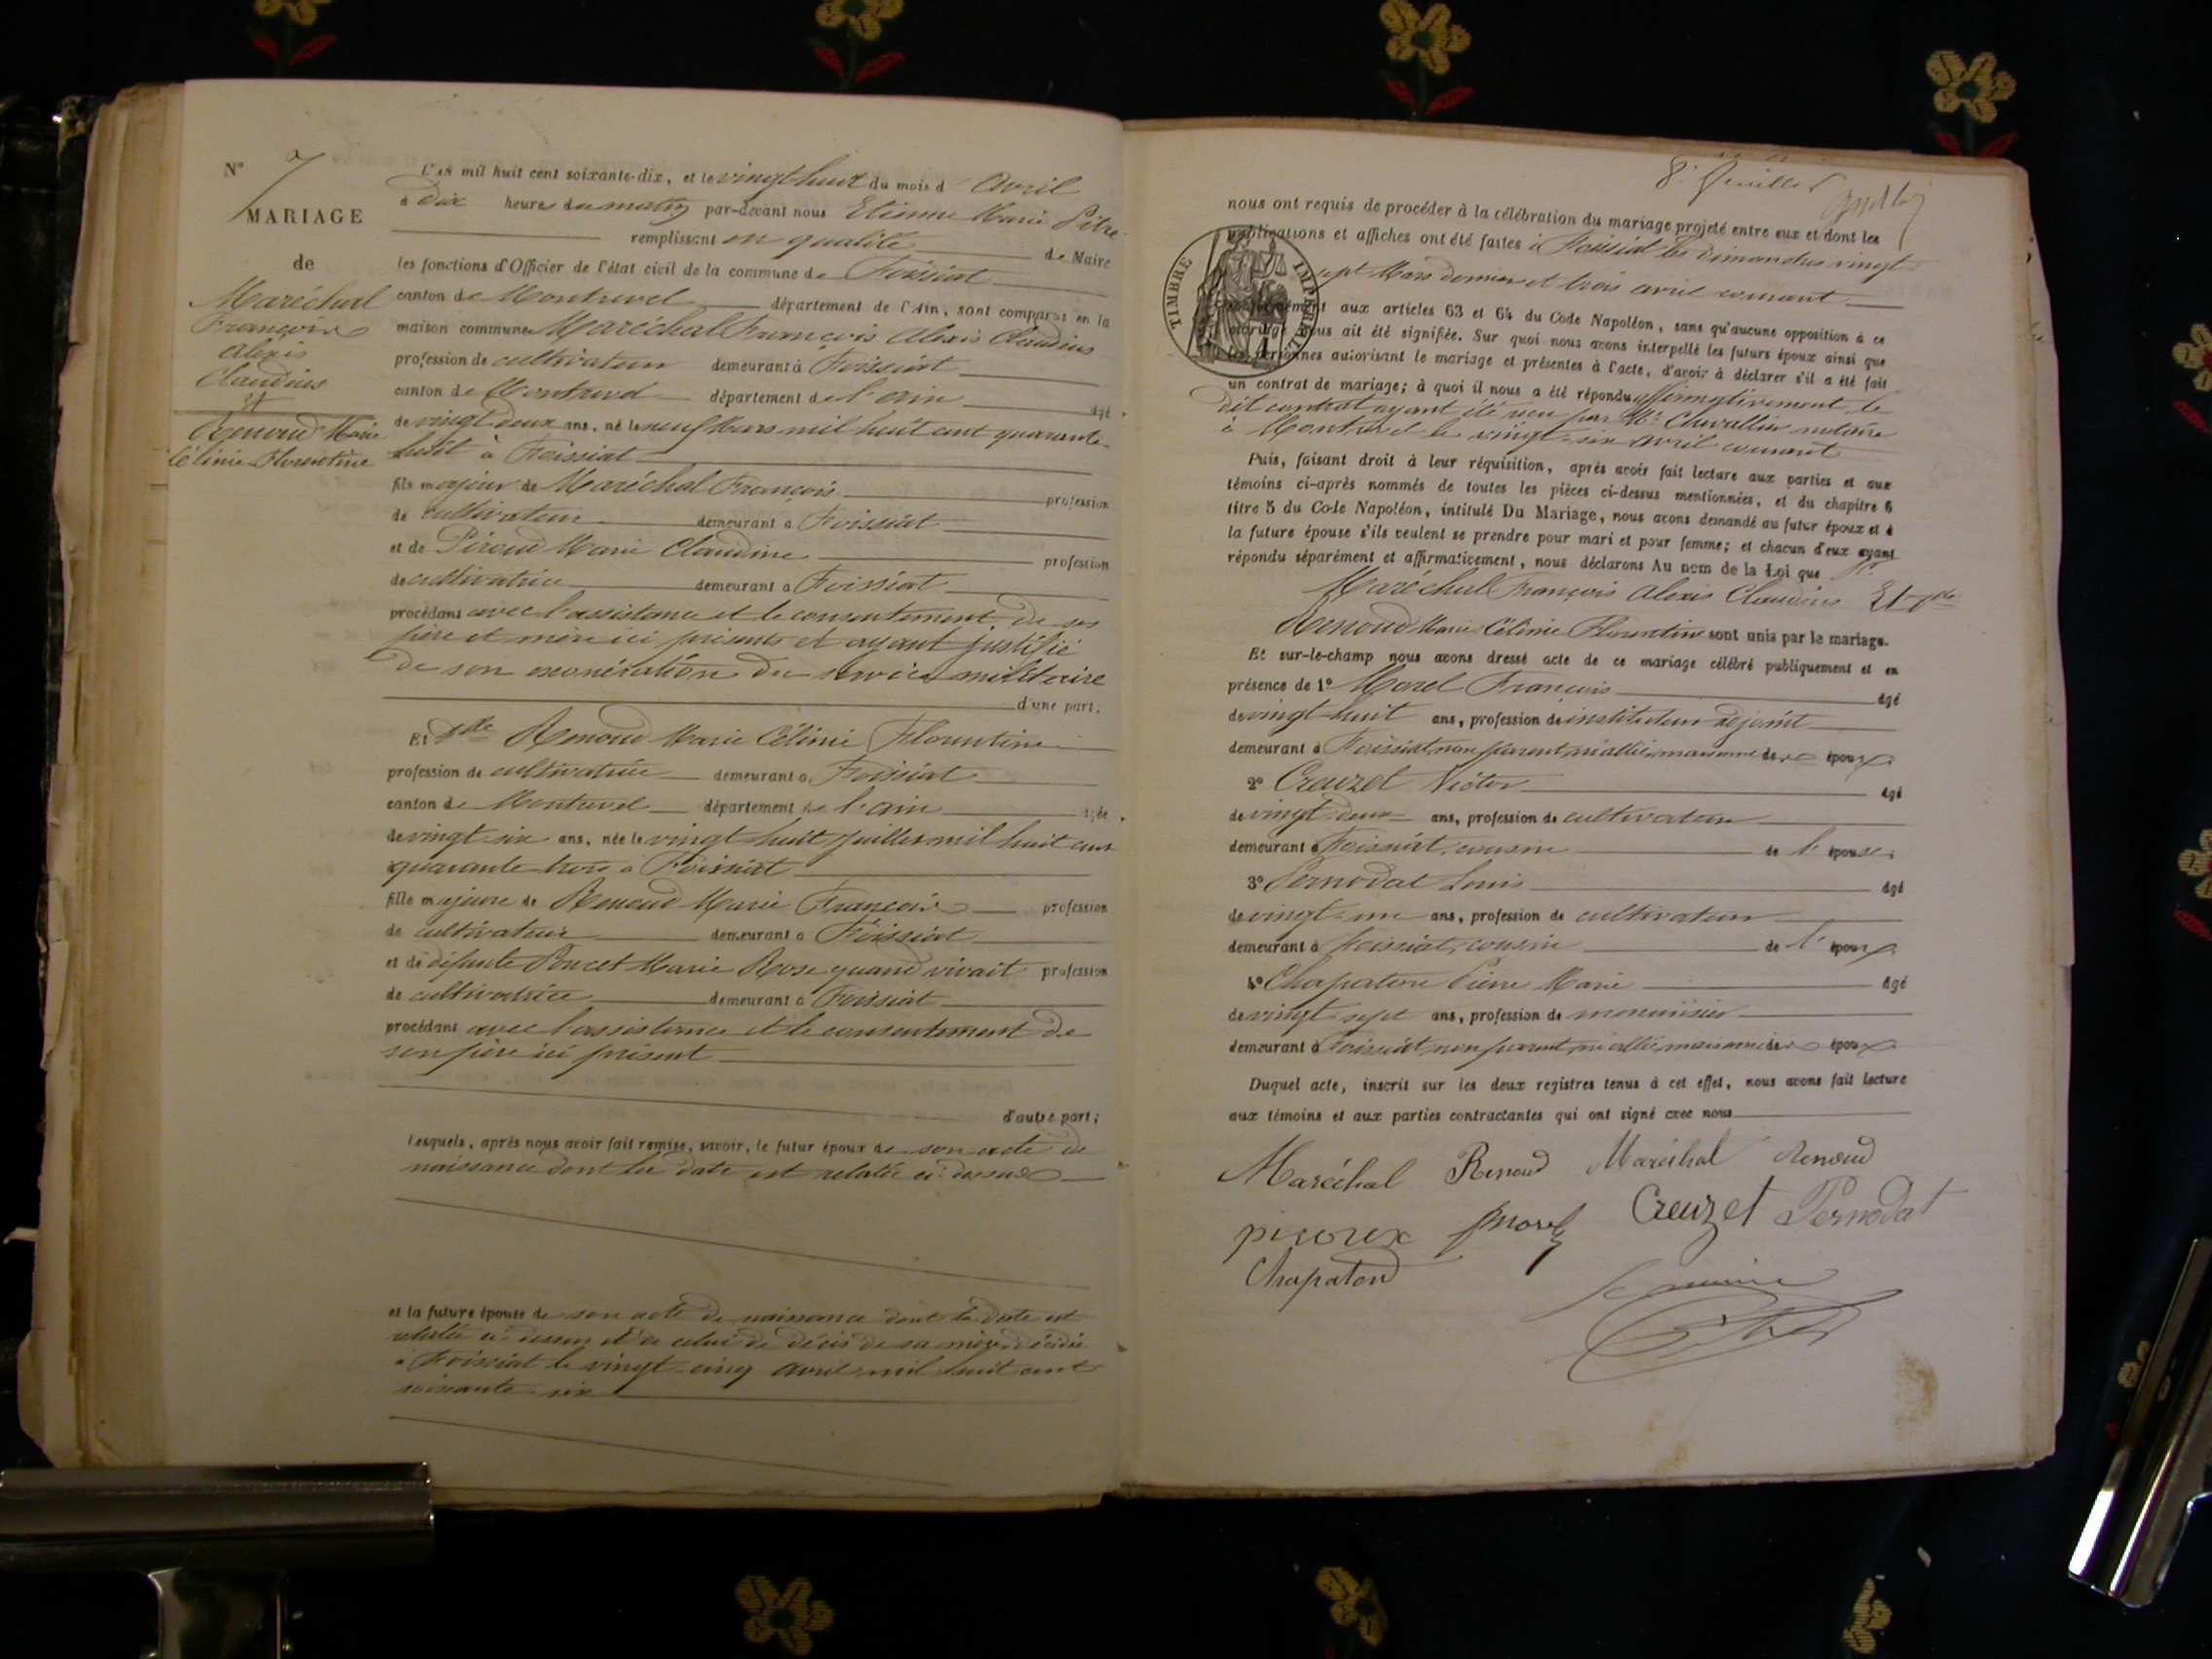 N° 7
MARIAGE
de
Maréchal
François
Alexis
Claudius
et
Renoud Marie
Célinie Florentine
L'an mil huit cent soixante-dix, et le vingt-huit du mois d'Avril
à dix heures du matin par-devant nous Etienne Marie Pitre
remplissant en qualité de Maire
les fonctions d'Officier de l'état civil de la commune de Foissiat
canton de Montrevel département de l'Ain, sont comparus en la
maison commune Maréchal François Alexis Claudius
profession de cultivateur demeurant à Foissiat
canton de Montrevel département de l'ain âgé
de vingt deux ans, né le neuf Mars mil huit cent quarante
huit à Foissiat
fils majeur de Maréchal François profession
de cultivateur demeurant à Foissiat
et de Piroud Marie Claudine profession
de cultivatrice demeurant à Foissiat
procédant avec l'assistance et le consentement de ses
père et mère ici présents et ayant justifié
de son exonération du service militaire
d'une part;
Et Dlle Renoud Marie Célinie Florentine
profession de cultivatrice demeurant à Foissiat
canton de Montrevel département de l'ain âgée
de vingt-six ans, née le vingt huit Juillet mil huit cent
quarante trois à Foissiat
fille majeure de Renoud Marie François profession
de cultivateur demeurant à Foissiat
et de défunte Poncet Marie Rose quand vivait profession
de cultivatrice demeurant à Foissiat
procédant avec l'assistance et le consentement de
son père ici présent
d'autre part;
Lesquels, après nous avoir fait remise, savoir, le futur époux de son acte de
naissance dont la date est relatée ci-dessus
et la future épouse de son acte de naissance dont la date est
relatée ci-dessus et de celui de décès de sa mère décédée
à Foissiat le vingt-cinq avril mil huit cent
soixante six
8e feuillet
nous ont requis de procéder à la célébration du mariage projeté entre eux et dont les
publications et affiches ont été faites à Foissiat les Dimanches vingt
sept Mars dernier et trois avril courant
conformément aux articles 63 et 64 du Code Napoléon, sans qu'aucune opposition à ce
mariage nous ait été signifiée. Sur quoi nous avons interpellé les futurs époux ainsi que
les personnes autorisant le mariage et présentes à l'acte, d'avoir à déclarer s'il a été fait
un contrat de mariage; à quoi il nous a été répondu affirmativement le
dit contrat ayant été reçu par Me Chevallier notaire
à Montrevel le vingt-six avril courant
TIMBRE IMPERIAL
Puis, faisant droit à leur réquisition, après avoir fait lecture aux parties et aux
témoins ci-après nommés de toutes les pièces ci-dessus mentionnées, et du chapitre 6
titre 5 du Code Napoléon, intitulé Du Mariage, nous avons demandé au futur époux et à
la future épouse s'ils veulent se prendre pour mari et pour femme; et chacun d'eux ayant
répondu séparément et affirmativement, nous déclarons Au nom de la Loi que Sr
Maréchal François Alexis Claudius Et Dlle
Renoud Marie Célinie Florentine sont unis par le mariage.
Et sur-le-champ nous avons dressé acte de ce mariage célébré publiquement et en
présence de 1° Morel François âgé
de vingt-huit ans, profession de instituteur adjoint
demeurant à Foissiat, non parent, ni allié, mais ami des époux
2° Creuzet Victor âgé
de vingt-deux ans, profession de cultivateur
demeurant à Foissiat, cousin de l'épouse
3° Pernodat Louis âgé
de vingt-un ans, profession de cultivateur
demeurant à Foissiat, cousin de l'époux
4° Chapaton Pierre Marie âgé
de vingt-sept ans, profession de menuisier
demeurant à Foissiat, non parent, ni allié, mais ami des époux
Duquel acte, inscrit sur les deux registres tenus à cet effet, nous avons fait lecture
aux témoins et aux parties contractantes qui ont signé avec nous
Maréchal Renoud Maréchal Renoud
Morel Creuzet Pernodat
Chapaton
Le maire
Pitre